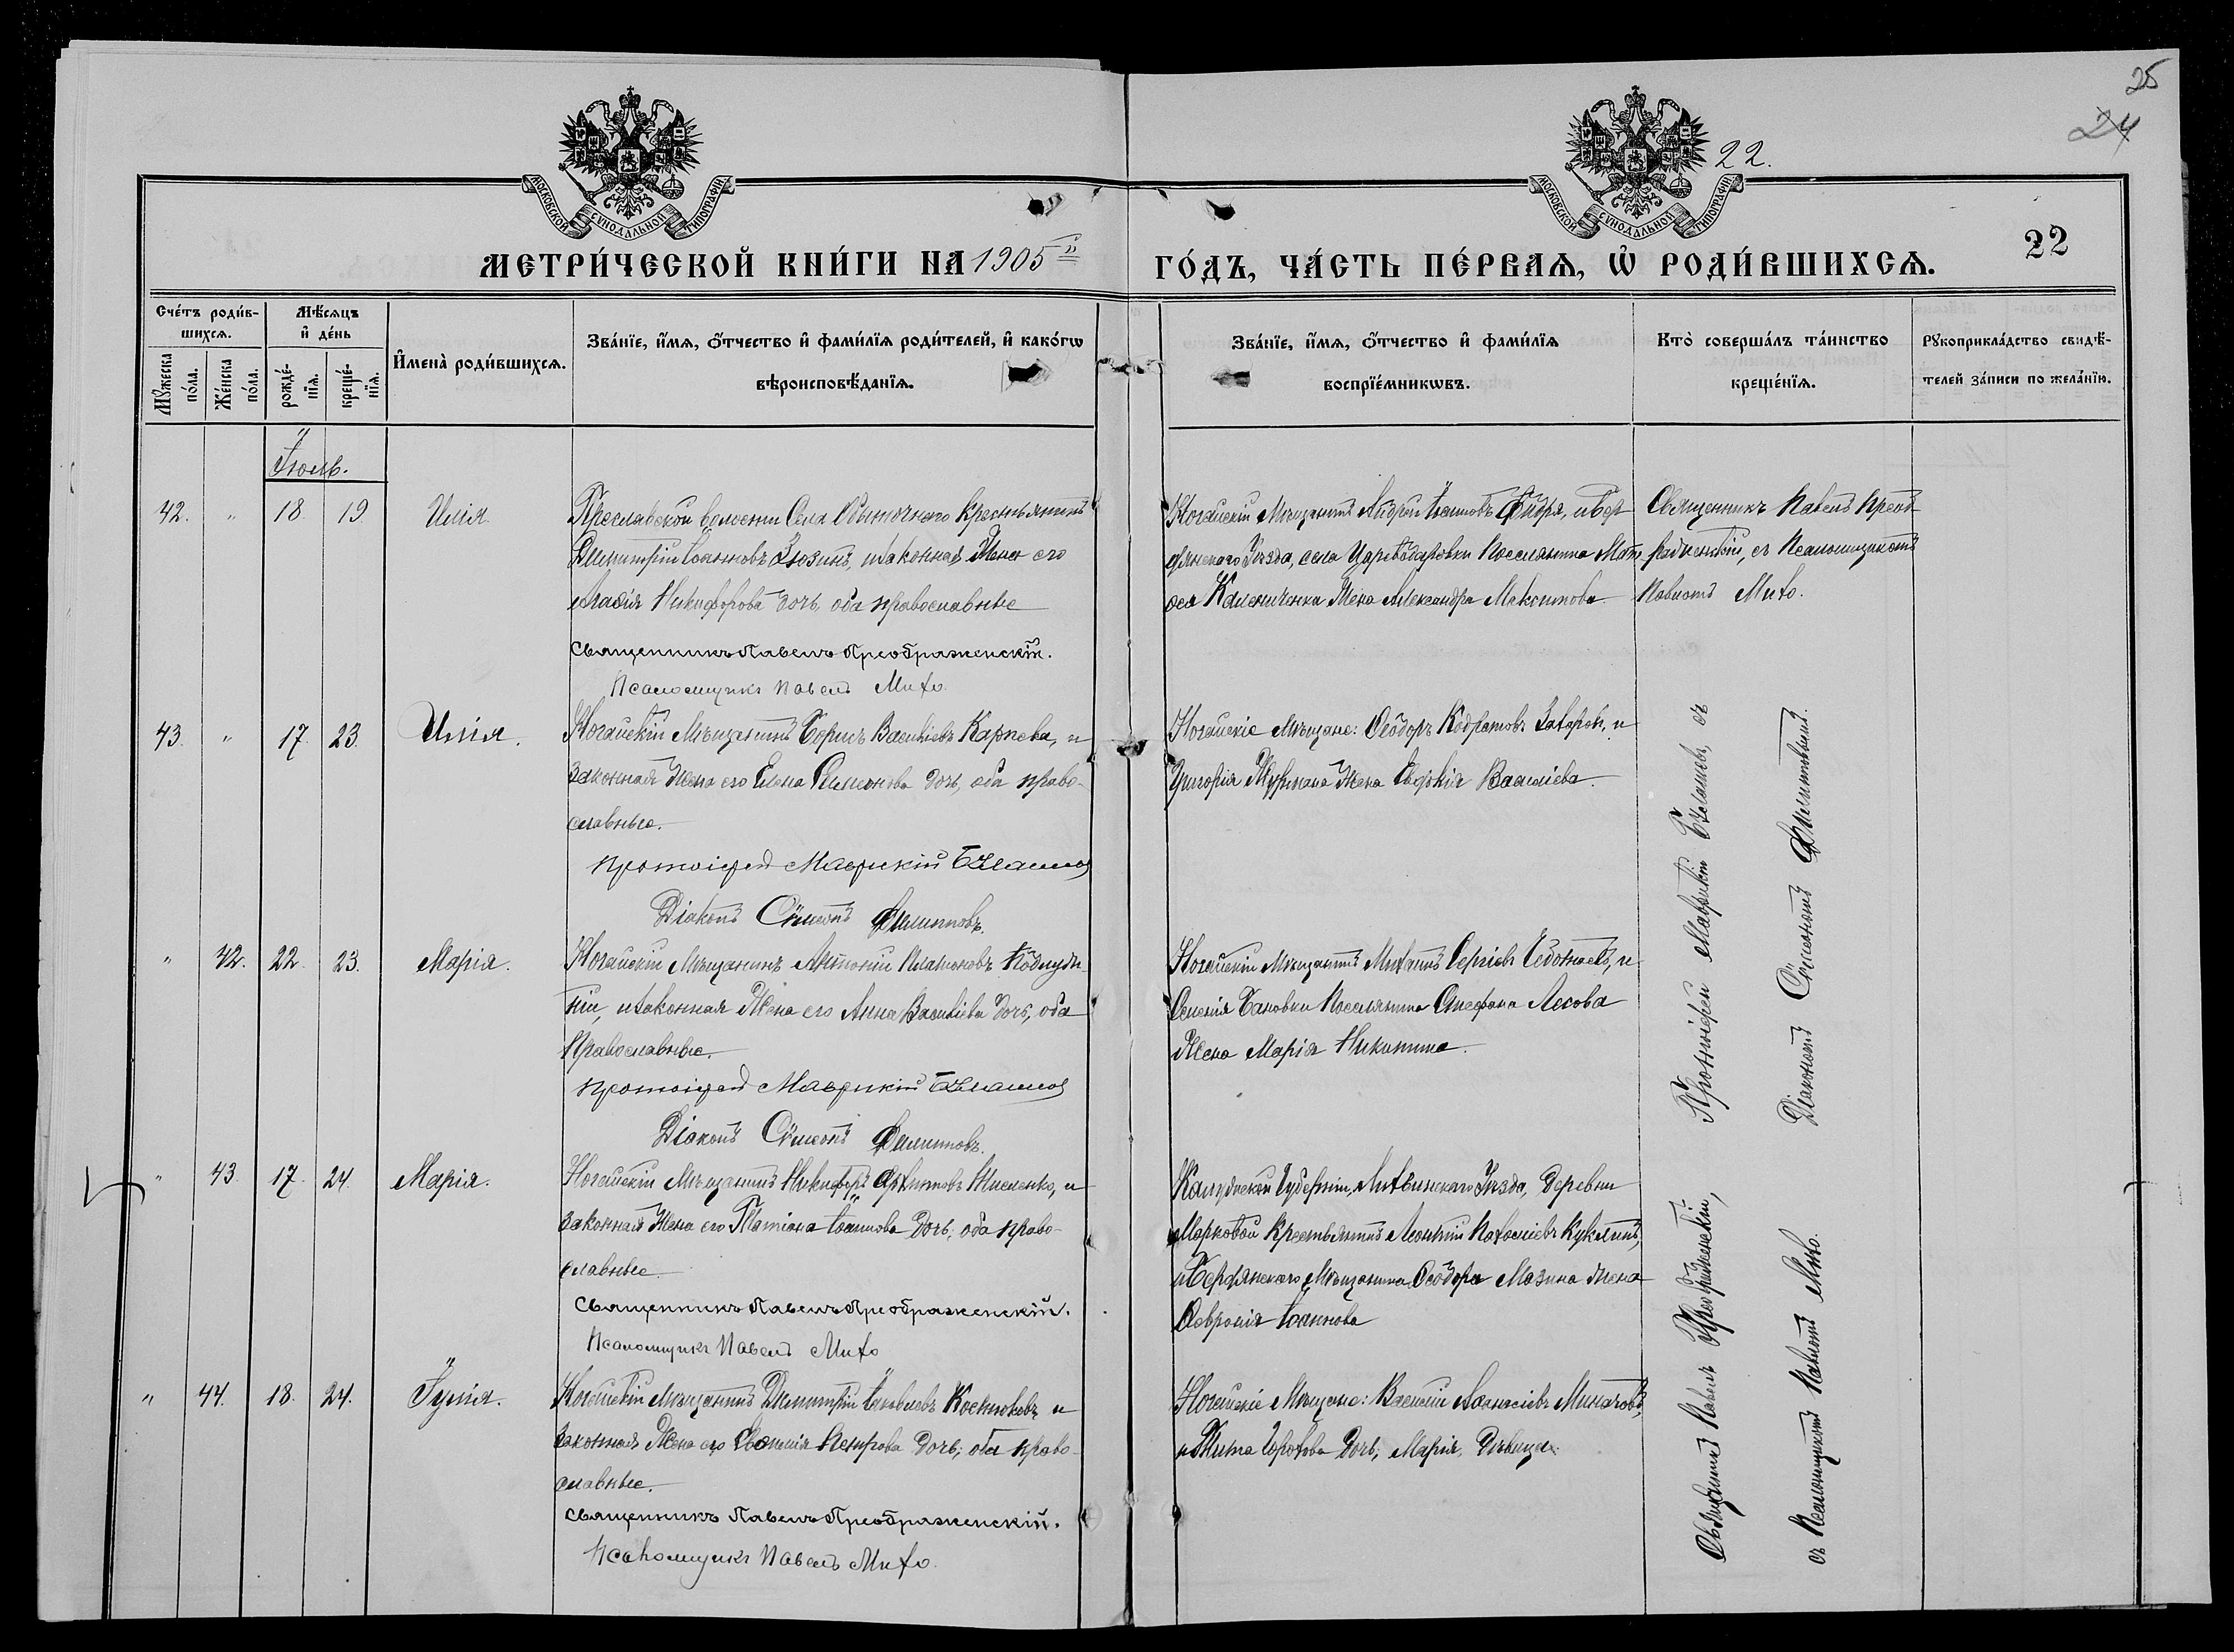 25
24
22.
МОСКОВСКОЙ СѴНОДАЛЬНОЙ ТИПОГРАФІИ
МОСКОВСКОЙ СѴНОДАЛЬНОЙ ТИПОГРАФІИ
22
МЕТРИ́ЧЕСКОЙ КНИ́ГИ НА 1905й
ГО́ДЪ, ЧА́СТЬ ПЕ́РВАѦ, Ѡ҆ РОДИ́ВШИХСѦ.
Сче́тъ роди́в-
шихсѧ.
Мѣ́сѧцъ
и҆ де́нь
Мꙋ́жеска по́ла.
Же́нска по́ла.
рожде́-нїѧ.
креще́-нїѧ.
И҆мена̀ роди́вшихсѧ.
Зва́нїе, и҆́мѧ, ѻ҆́тчество и҆ фами́лїѧ роди́телей, и҆ како́гѡ
вѣроисповѣ́данїѧ.
Зва́нїе, и҆́мѧ, ѻ҆́тчество и҆ фами́лїѧ
воспрїе́мникѡвъ.
Кто̀ соверша́лъ та́инство
креще́нїѧ.
Рꙋкоприкла́дство свидѣ́-
телей за́писи по жела́нїю.
Іюль.
42. " 18. 19 Илія.
Преславской волости Села Обиточнаго Крестьянинъ
Димитрій Іоанновъ Зюзинъ, и законная Жена его
Никифорова дочь, оба православные
Священникъ Павелъ Преображенскій.
Псаломщикъ Павелъ Михо.
Ногайскій Мѣщанинъ Андрей и Бер
дянскаго Уѣзда, села Царевдаровки Поселянина Мат
Жена Александра Максимова.
Священникъ Павелъ Преоб
раженскій, съ Псаломщикомъ
Павломъ Михо.
43. " 17. 23. Илія.
Ногайскій Мѣщанинъ Борисъ Васильевъ Карпева, и
законная Жена его Елена Симеонова дочь, оба право-
славные.
Протоіерей Маврикій
Діаконъ Симеонъ Филипповъ.
Ногайскіе Мѣщане: Ѳеодоръ и
Григорія Жена Евдокія Васильева.
Протоіерей Маврикій съ
Діакономъ Симеономъ Филипповымъ.
" 42. 22. 23. Марія.
Ногайскій Мѣщанинъ Антоній Платоновъ
ній, и законная Жена его Анна Васильева дочь, оба
Православные.
Протоіерей Маврикій
Діаконъ Симеонъ Филипповъ.
Ногайскій Мѣщанинъ Михаилъ Сергіевъ и
Селенія Бановки Поселянина Стефана Лесова
Жена Марія Никитина.
" 43. 17. 24. Марія.
Ногайскій Мѣщанинъ Никифоръ и
законная Жена его Татіана Іоаннова дочь, оба право-
славные.
Священникъ Павелъ Преображенскій.
Псаломщикъ Павелъ Михо
Калужской Губерніи, Лихвинскаго Уѣзда, Деревни
Марковой Крестьянинъ Леонтій
и Бердянскаго Мѣщанина Ѳеодора Мазина Жена
Іоаннова
Священникъ Павелъ Преображенскій,
съ Псаломщикомъ Павломъ Михо.
" 44. 18. 24. Іулія.
Ногайскій Мѣщанинъ Димитрій Іаковлевъ и
законная Жена его Петрова дочь; оба право-
славные.
Священникъ Павелъ Преображенскій.
Псаломщикъ Павелъ Михо.
Ногайскіе Мѣщане: Василій
дочь, Марія, Дѣвица.